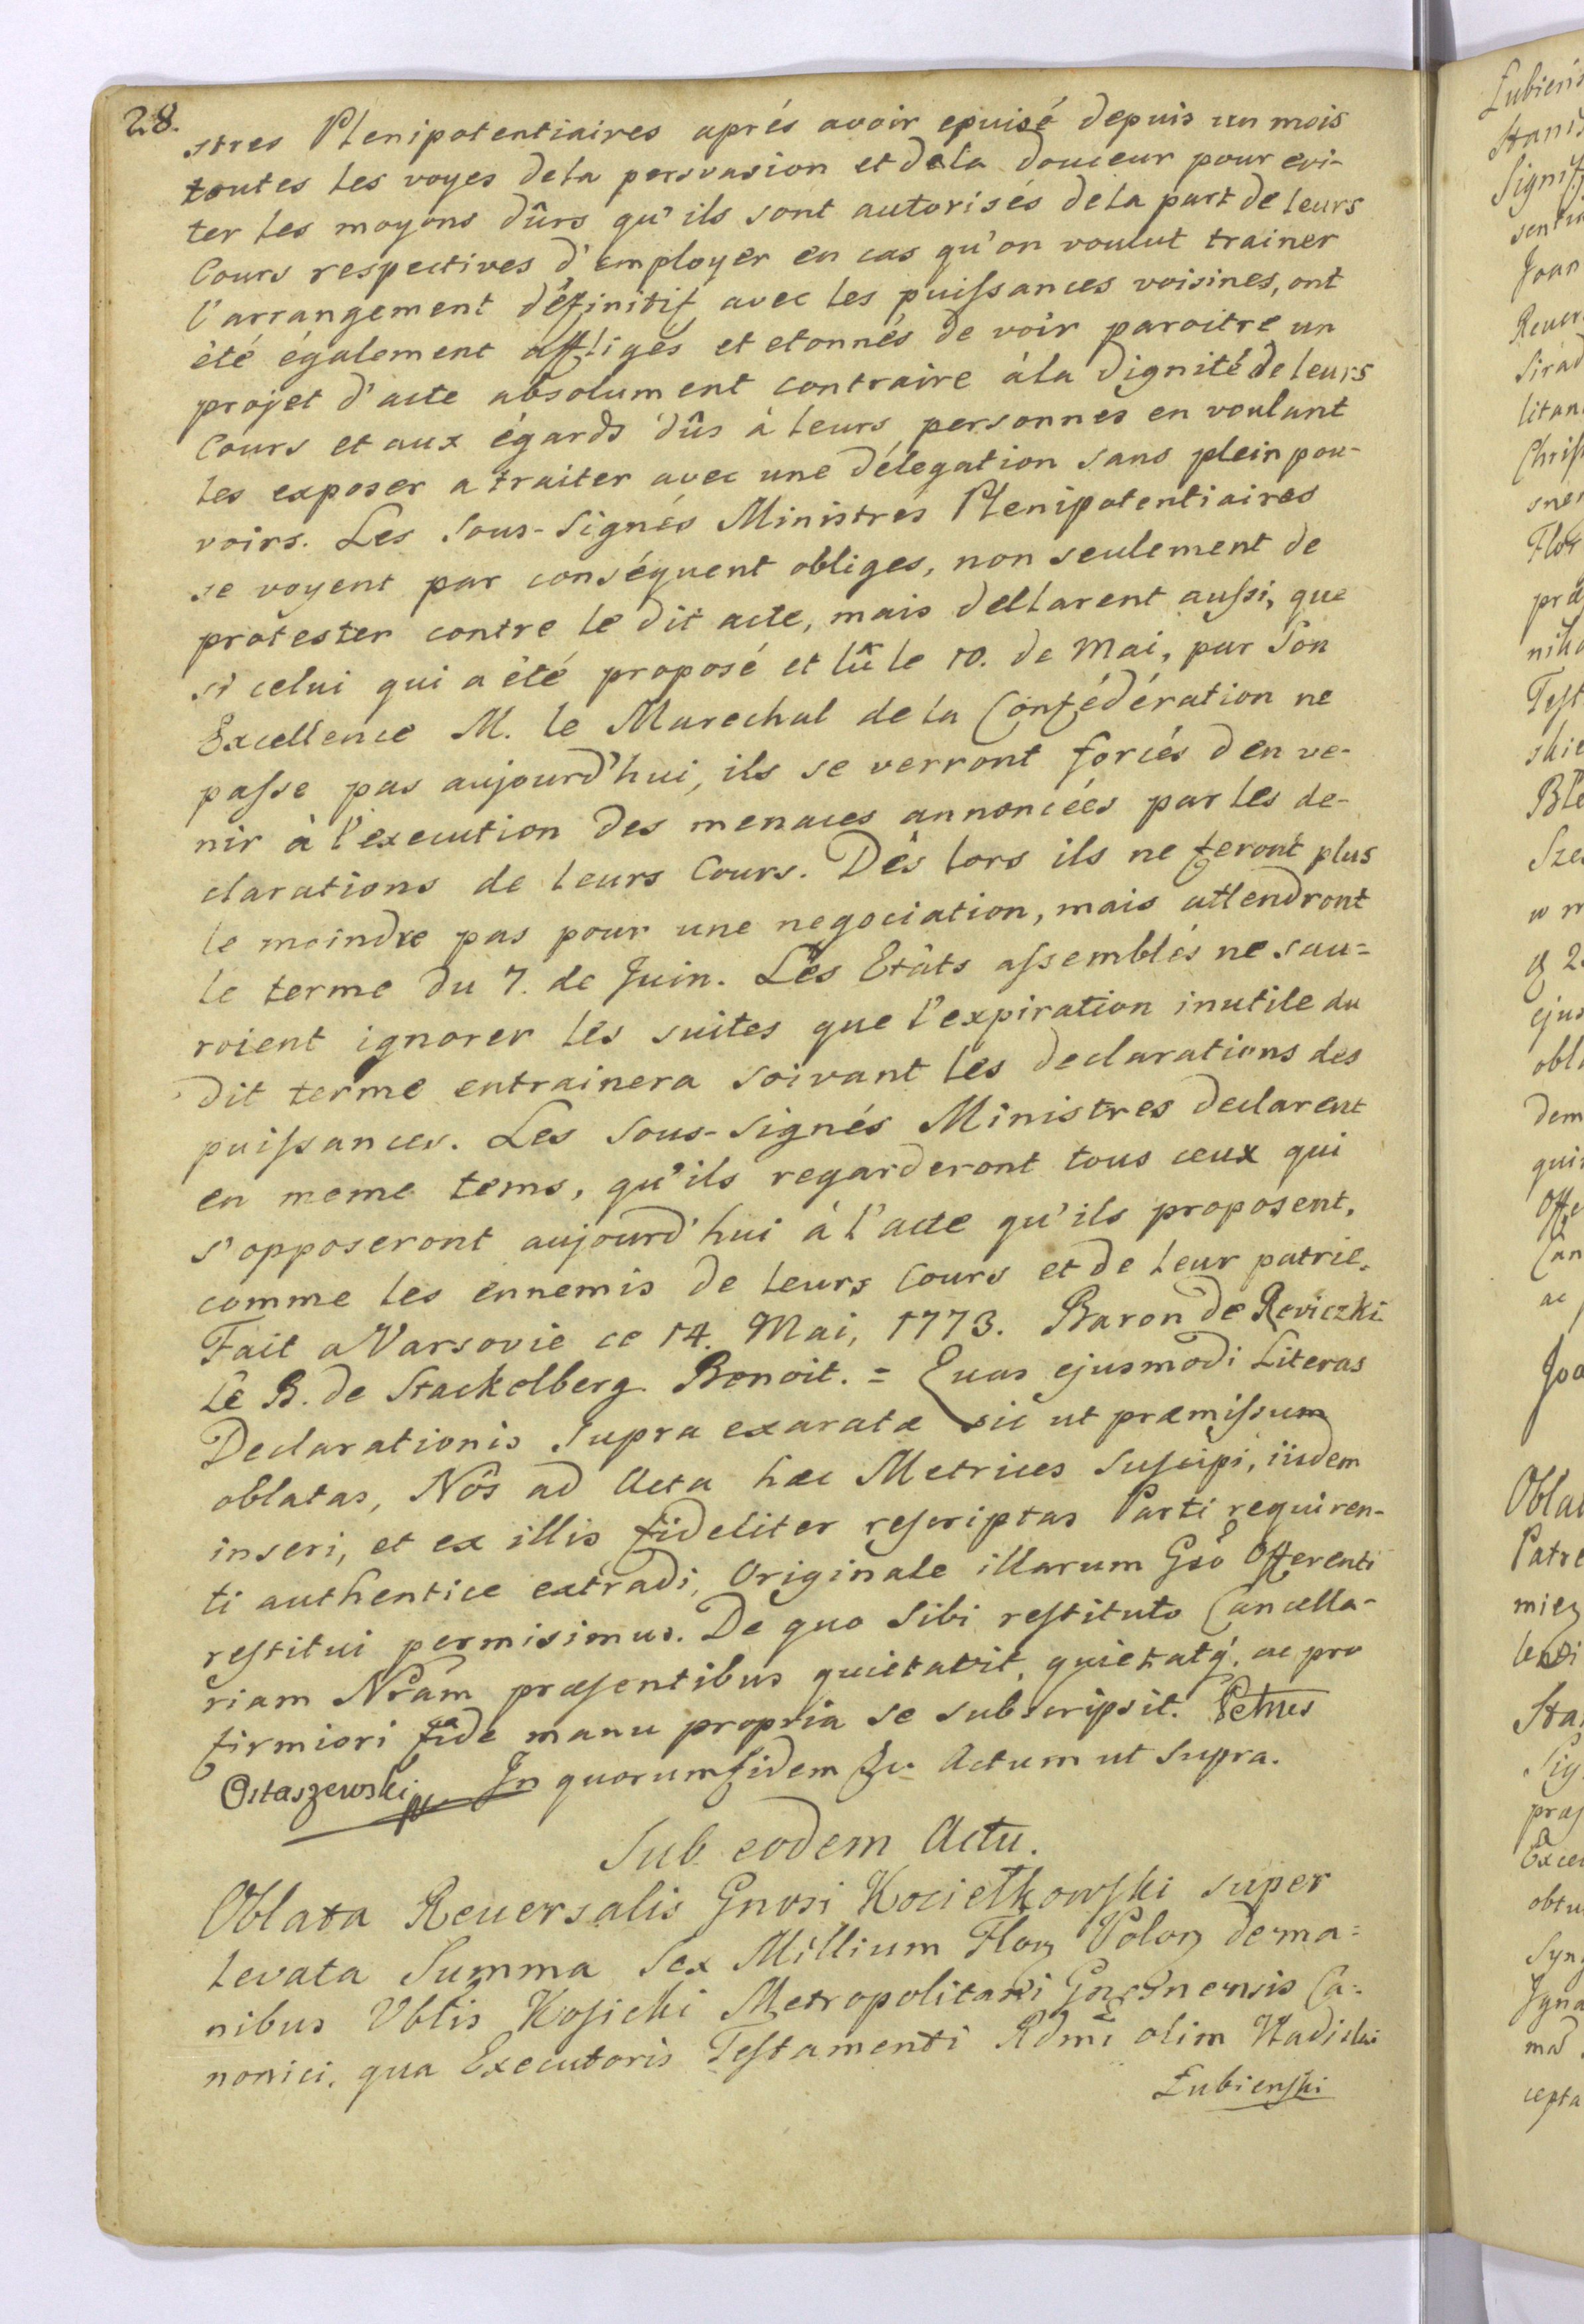 28.
stres Plenipotentiaires aprés avoir epuisé depuis un mois
toutes les voyes dela persvasion et dela douceur pour evi-
ter les moyens dûrs qu'ils sont autorisés dela part de leurs
Cours respectives d'employer en cas qu'on voulut trainer
l'arrangement définitif avec les puiſsances voisines, ont
été également affligés et etonnés de voir paroitre un
projet d'acte absolument contraire àla dignité de leurs
Cours et aux égards dûs à leurs personnes en voulant
les exposer a traiter avec une délegation sans plein pou-
voirs. Les Sous-Signés Ministres Plenipotentiaires
se voyent par conséquent obliges, non seulement de
protester contre le dit acte, mais declarent auſsi, que
si celui qui a été proposé et lû le 10. de Mai, par Son
Excellence M. le Marechal de la Confédération ne
paſse pas aujourd'hui, ils se verront forcés d'en ve-
nir à l'execution des menaces annoncées par les de-
clarations de leurs Cours. Dès lors ils ne feront plus
le moindre pas pour une negociation, mais attendront
le terme du 7. de Juin. Les Etâts aſsemblés ne sau=
roient ignorer les suites que l'expiration inutile du
dit terme entrainera soivant les declarations des
puiſsances. Les Sous-Signés Ministres declarent
en meme tems, qu'ils regarderont tous ceux qui
s'opposeront aujourd'hui à l'acte qu'ils proposent,
comme les ennemis de leurs Cours et de leur patrie.
Fait a Varsovie ce 14. Mai, 1773. Baron de Reviczki
le B. de Stackelberg Benoit. = Quas ejusmodi Literas
Declarationis Supra exaratæ sic ut præmiſsum
oblatas, Nos ad Acta hæc Metrices Suſcipi, iisdem
inseri, et ex illis fideliter reſcriptas Parti requiren-
ti authentice extradi, Originale illarum Gso Offerenti
reſtitui permisimus. De quo Sibi reſtituto Cancella-
riam Nram præſentibus quietavit, quietatq́. ac pro
firmiori fide manu propria se subscripsit. Petrus
Ostaszewski In quorum fidem &c Actum ut Supra.
Sub eodem Actu.
Oblata Reuersalis Gnosi Kociełkowſki super
levata Summa Sex Millium Flor Polon de ma=
nibus Vblis Koſicki Metropolitani Gneznensis Ca=
nonici, qua Executoris Teſtamenti Rdmi olim Vladislai
Łubienſki